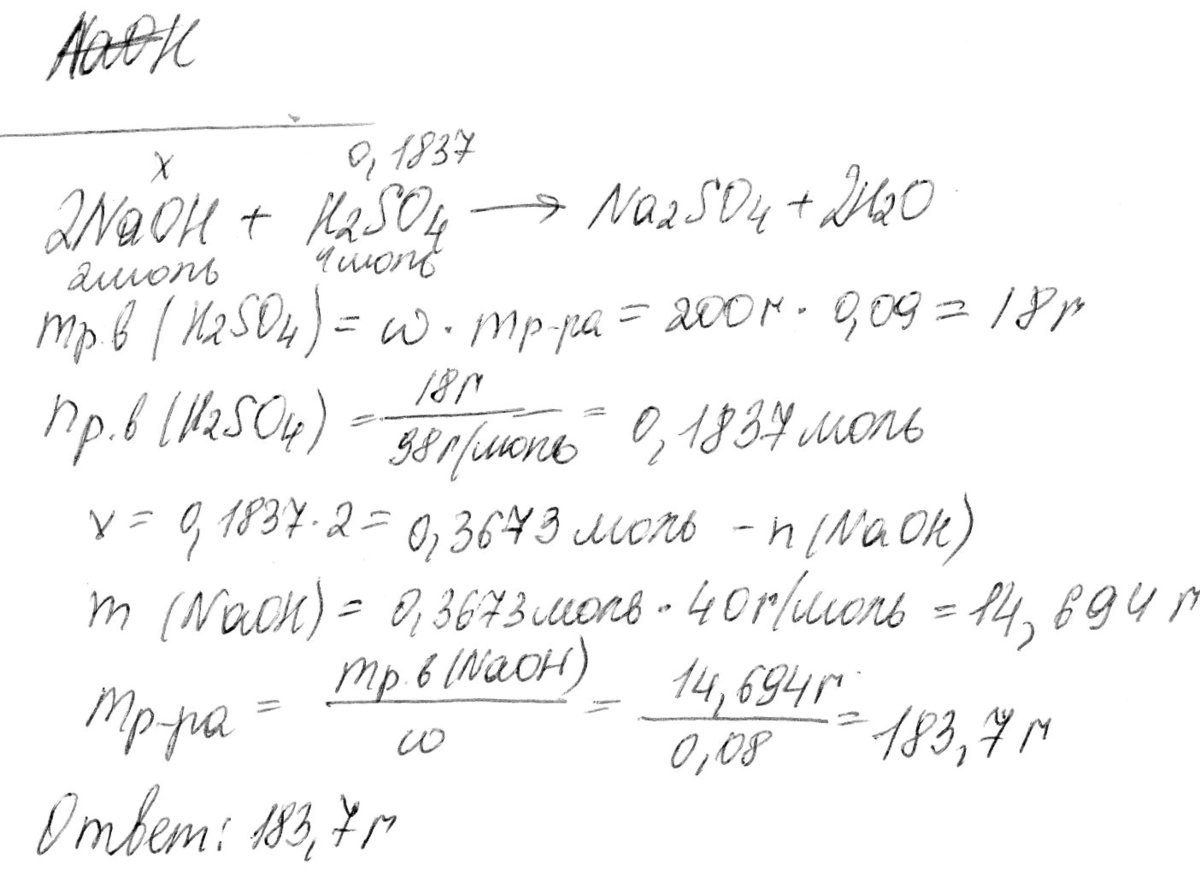 NaOH
x 0,1837
2NaOH + H2SO4 → Na2SO4 + 2H2O
2моль 1моль
mр.в (H2SO4) = ω · mр-ра = 200г · 0,09 = 18г
nр.в (H2SO4) = 18г / 98г/моль = 0,1837моль
x = 0,1837 · 2 = 0,3673 моль - n (NaOH)
m (NaOH) = 0,3673моль · 40г/моль = 14,694 г
mр-ра = mр.в (NaOH) / ω = 14,694г / 0,08 = 183,7 г
Ответ: 183,7г